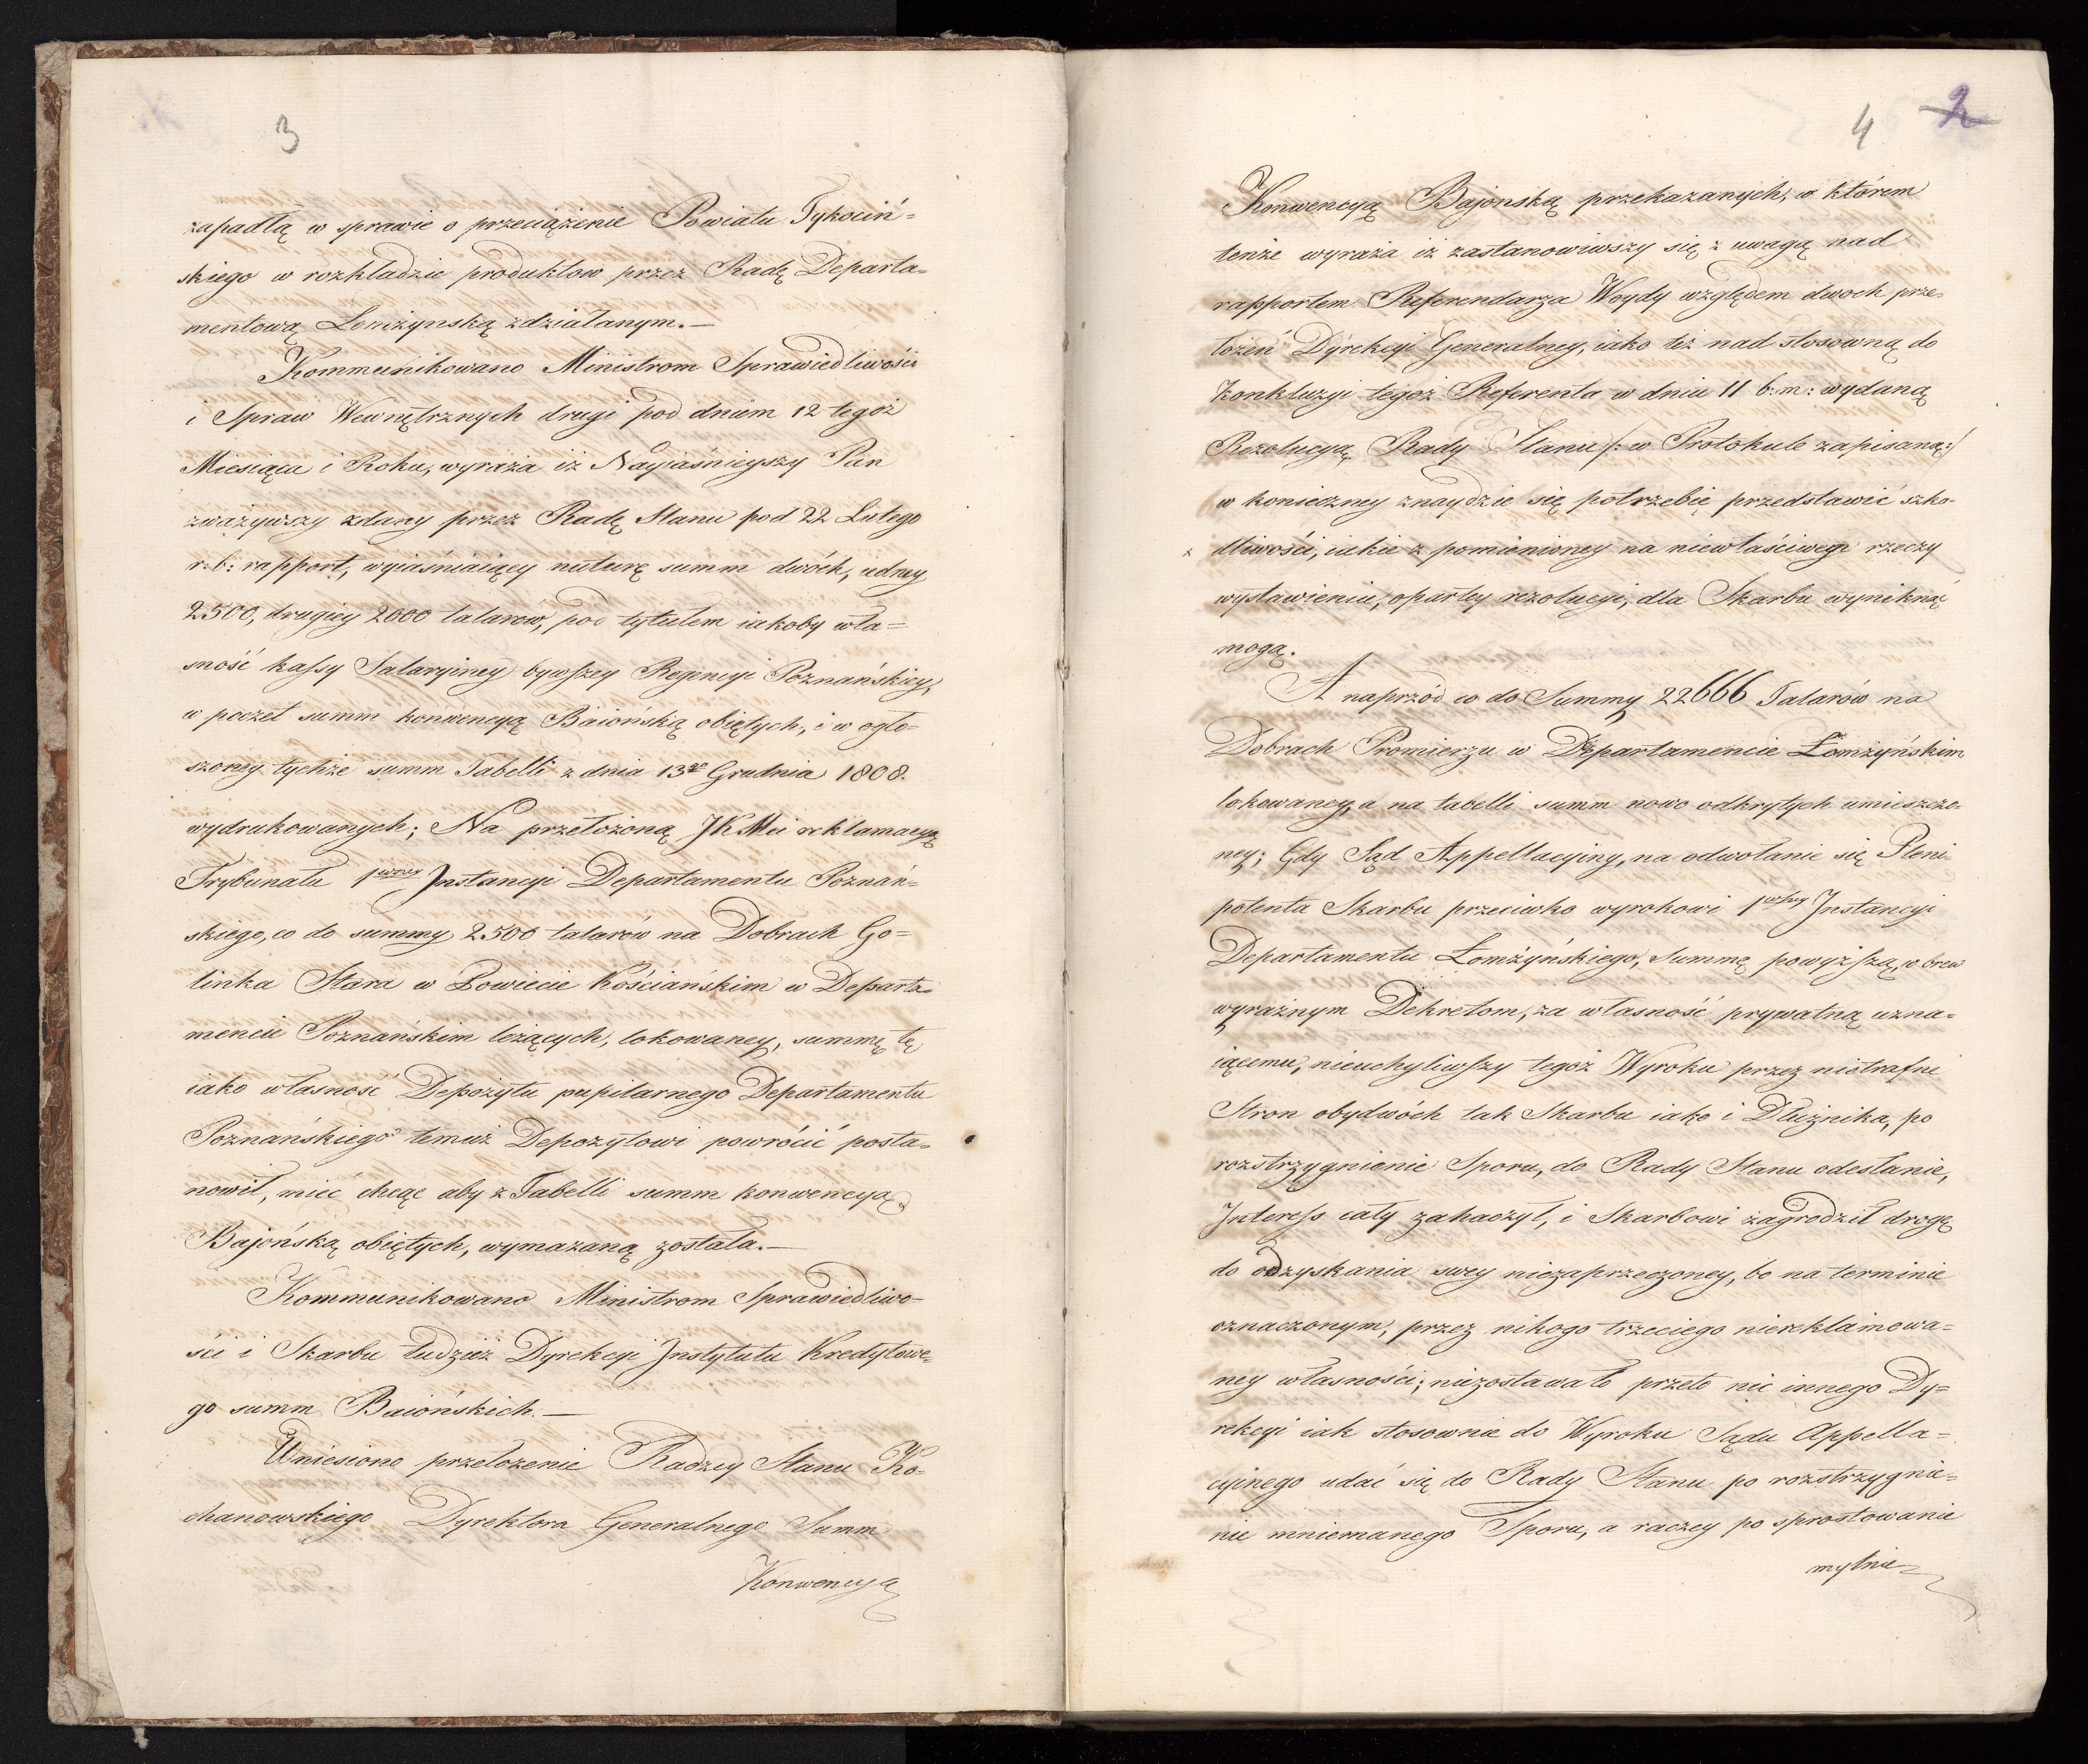 3
zapadłą w sprawie o przeciążenie Powiatu Tykociń=
skiego w rozkładzie produktow przez Radę Departa=
mentową Łomżynską zdziałanym.—
Kommunikowano Ministrom Sprawiedliwości
i Spraw Wewnętrznych drugi pod dniem 12 tegoż
Miesiąca i Roku, wyraża iż Nayiaśnieyszy Pan
zważywszy zdany przez Radę Stanu pod 22 Lutego
r: b: rapport, wyiaśniaiący naturę summ dwóch, iedney
2500, drugiey 2000 talarow, pod tytułem iakoby wła=
sność kassy Salaryiney bywszey Regencyi Poznańskiey,
w poczet summ konwencyą Baiońską obiętych, i w ogło=
szoney tychże summ Tabelli z dnia 13go Grudnia 1808.
wydrukowanych; Na przełożoną JKMci reklamacyą
Trybunału 1wszey Jnstancyi Departamentu Poznań=
skiego, co do summy 2500 talarów na Dobrach Go=
linka Stara w Powiecie Kościańskim w Departa=
mencie Poznańskim leżących, lokowaney, summę tę
iako własność Depozytu pupilarnego Departamentu
Poznańskiego temuż Depozytowi powrócić posta=
nowił, mieć chcąc aby z Tabelli summ konwencyą
Bajońską obiętych, wymazaną została.—
Kommunikowano Ministrom Sprawiedliwo=
ści i Skarbu tudzież Dyrekcyi Jnstytutu Kredytowe=
go summ Baiońskich.—
Wniesiono przełożenie Radzcy Stanu Ko=
chanowskiego Dyrektora Generalnego Summ
Konwencyą
4 2
Konwencyą Bajonską przekazanych, w którem
tenże wyraża iż zastanowiwszy się z uwagą nad
rapportem Referendarza Woydy względem dwoch prze=
łożeń Dyrekcyi Generalney, iako też nad stosowną do
konkluzyi tegoż Referenta w dniu 11 b: m: wydaną
Rezolucyą Rady Stanu /: w Protokule zapisaną :/
w konieczney znaydzie się potrzebie przedstawić szko=
x dliwości, iakie z pomienioney na niewłaściwego rzeczy
wystawieniu, opartey rezolucyi, dla Skarbu wyniknąć
mogą.
A naprzód co do Summy 22666 Talarów na
Dobrach Promierzu w Departamencie Łomżyńskim
lokowaney, a na tabelli summ nowo odkrytych umieszczo=
ney; Gdy Sąd Appellacyiny, na odwołanie się Pleni=
potenta Skarbu przeciwko wyrokowi 1wszey Jnstancyi
Departamentu Łomżyńskiego, Summę powyższą, wbrew
wyraźnym Dekretom, za własność prywatną uzna=
iącemu, nieuchyliwszy tegoż Wyroku przez nietrafne
Stron obydwóch tak Skarbu iako i Dłużnika, po
rozstrzygnienie Sporu, do Rady Stanu odesłanie,
Jnteress cały zahaczył, i Skarbowi zagrodził drogę
do odzyskania swey niezaprzeczoney, bo na terminie
oznaczonym, przez nikogo trzeciego niereklamowa=
ney własności; niezostawało przeto nic innego Dy=
rekcyi iak stosownie do Wyroku Sądu Appella=
cyinego udać się do Rady Stanu po rozstrzygnie=
nie mniemanego Sporu, a raczey po sprostowanie
mylnie